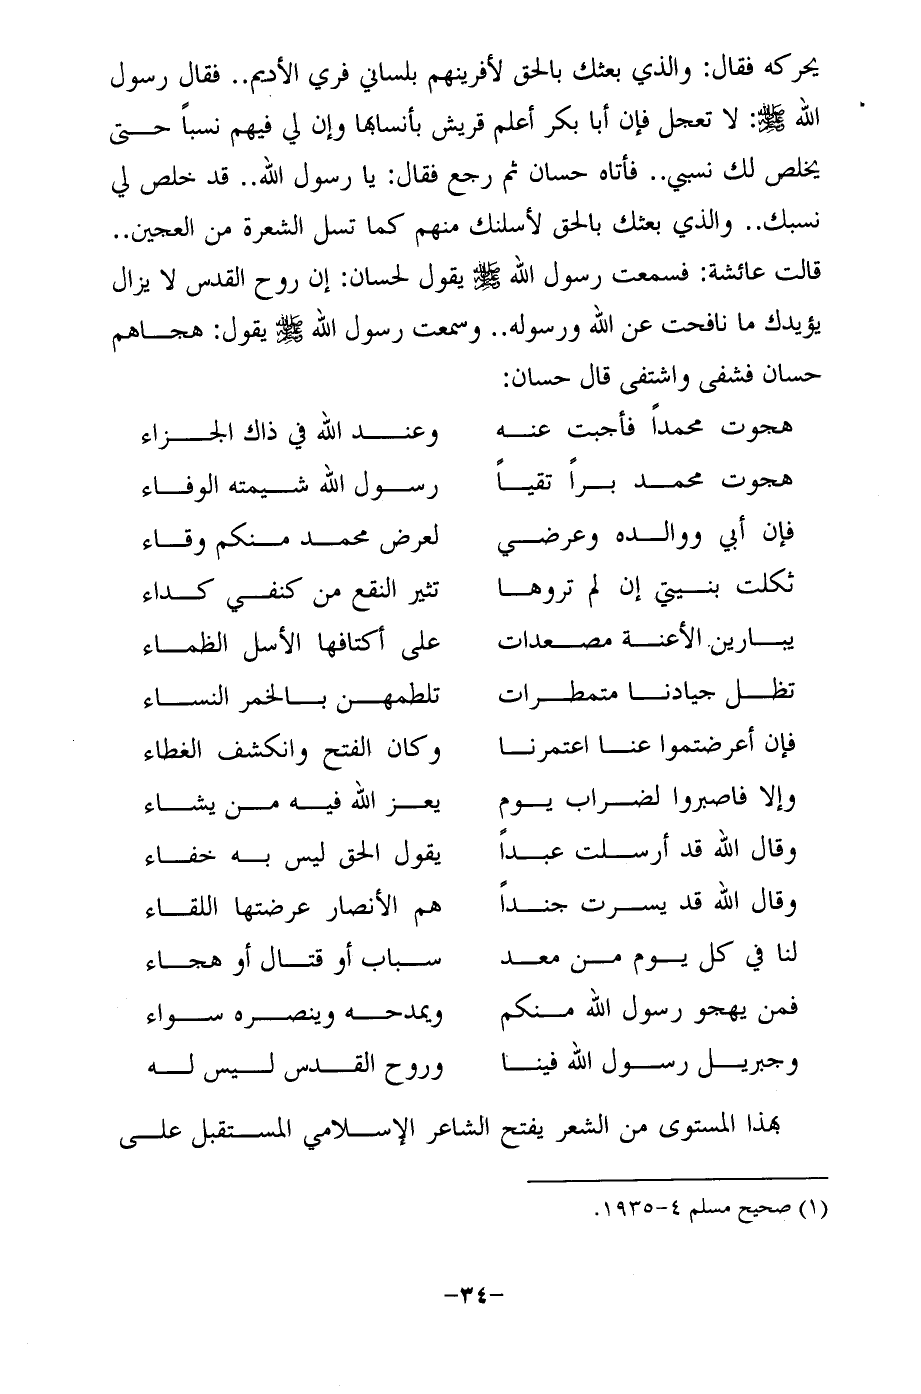 يحركه فقال: والذي بعثك بالحق لأفرينهم بلساني فري الأديم.. فقال رسول
الله ﷺ: لا تعجل فإن أبا بكر أعلم قريش بأنسابها وإن لي فيهم نسباً حتى
يخلص لك نسبي.. فأتاه حسان ثم رجع فقال: يا رسول الله.. قد خلص لي
نسبك.. والذي بعثك بالحق لأسلنك منهم كما تسل الشعرة من العجين..
قالت عائشة: فسمعت رسول الله ﷺ يقول لحسان: إن روح القدس لا يزال
يؤيدك ما نافحت عن الله ورسوله.. وسمعت رسول الله ﷺ يقول: هجاهم
حسان فشفى واشتفى قال حسان:
هجوت محمداً فأجبت عنه وعند الله في ذاك الجزاء
هجوت محمد براً تقياً رسول الله شيمته الوفاء
فإن أبي ووالده وعرضي لعرض محمد منكم وقاء
ثكلت بنيتي إن لم تروها تثير النقع من كنفي كداء
يبارين الأعنة مصعدات على أكتافها الأسل الظماء
تظل جيادنا متمطرات تلطمهن بالخمر النساء
فإن أعرضتموا عنا اعتمرنا وكان الفتح وانكشف الغطاء
وإلا فاصبروا لضراب يوم يعز الله فيه من يشاء
وقال الله قد أرسلت عبداً يقول الحق ليس به خفاء
وقال الله قد يسرت جنداً هم الأنصار عرضتها اللقاء
لنا في كل يوم من معد سباب أو قتال أو هجاء
فمن يهجو رسول الله منكم ويمدحه وينصره سواء
وجبريل رسول الله فينا وروح القدس ليس له
بهذا المستوى من الشعر يفتح الشاعر الإسلامي المستقبل على
(١) صحيح مسلم ٤-١٩٣٥.
-٣٤-